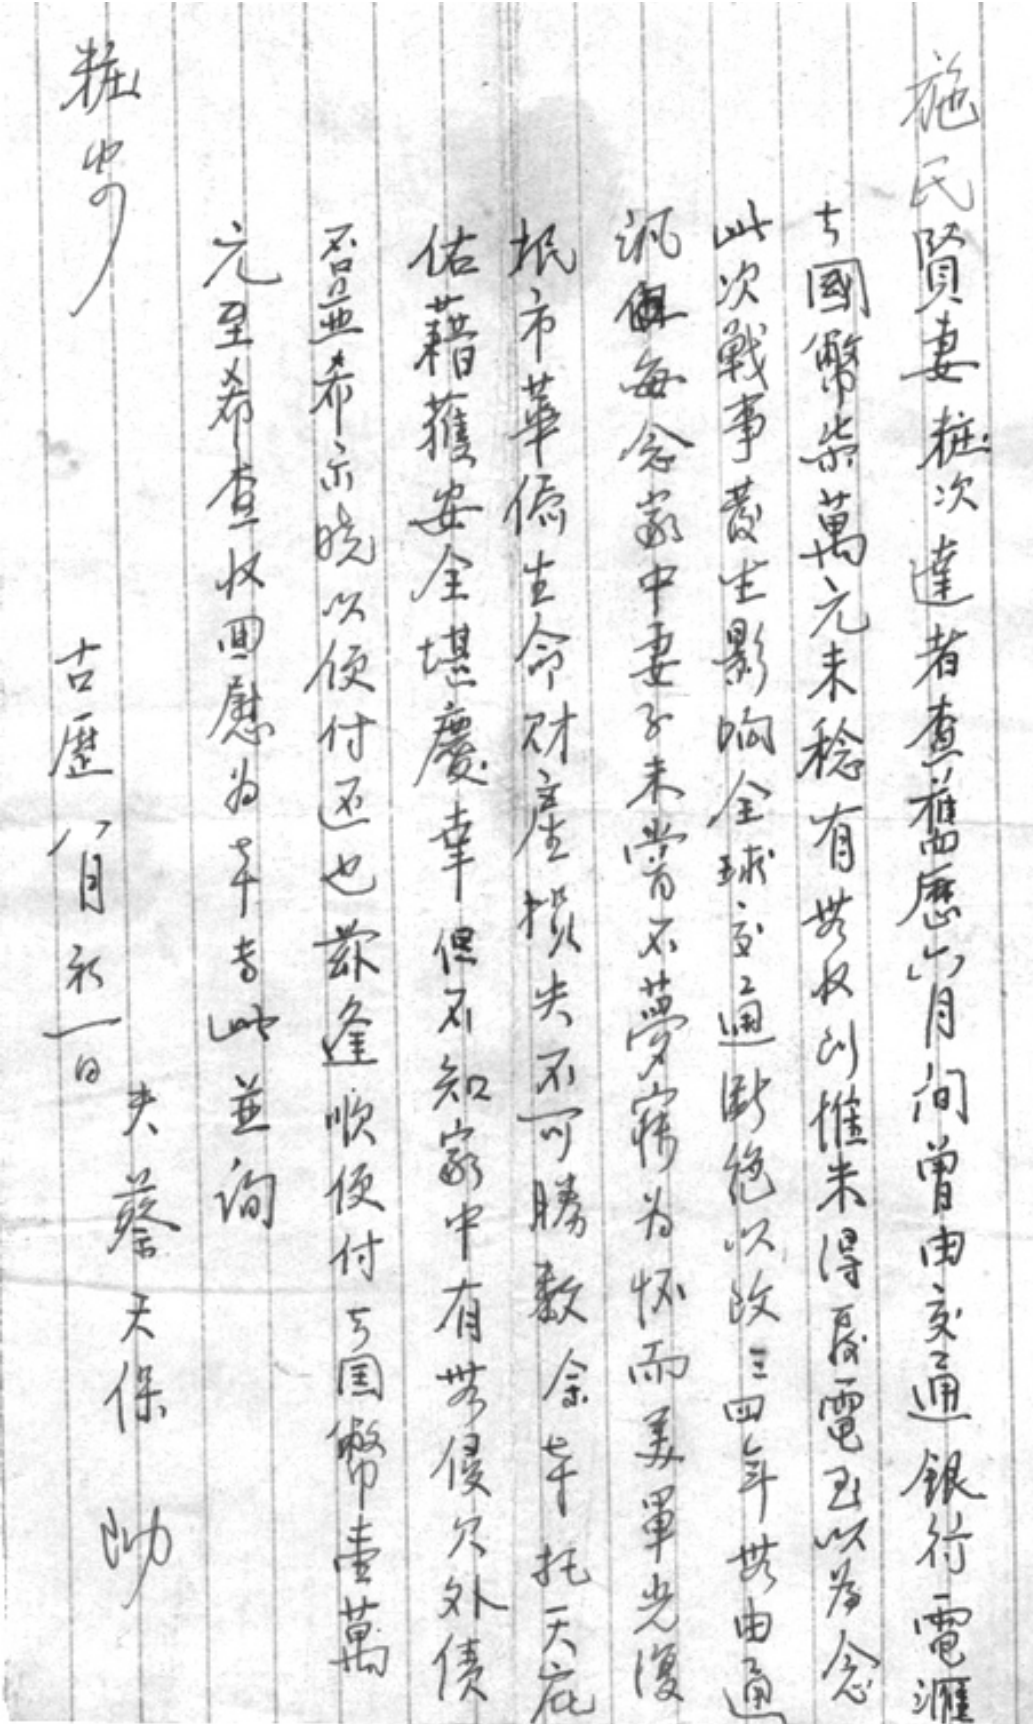 施氏賢妻粧次達者查舊曆六月间曾由交通銀行電滙
去國幣柒萬元未稔有無收到惟未得覆電至以為念
此次戰事發生影响全球交通断绝以致三四年無由通
訊每念家中妻子未嘗不夢寐为怀而美軍光復
岷市華僑生命财產損失不可勝数余幸托天庇
佑藉獲安全堪慶幸但不知家中有無侵欠外债
否並希示晓以便付还也茲逢順便付去国幣壹萬
元至希查收回慰为幸耑此並询
粧安
夫蔡天保
古歷八月初一日